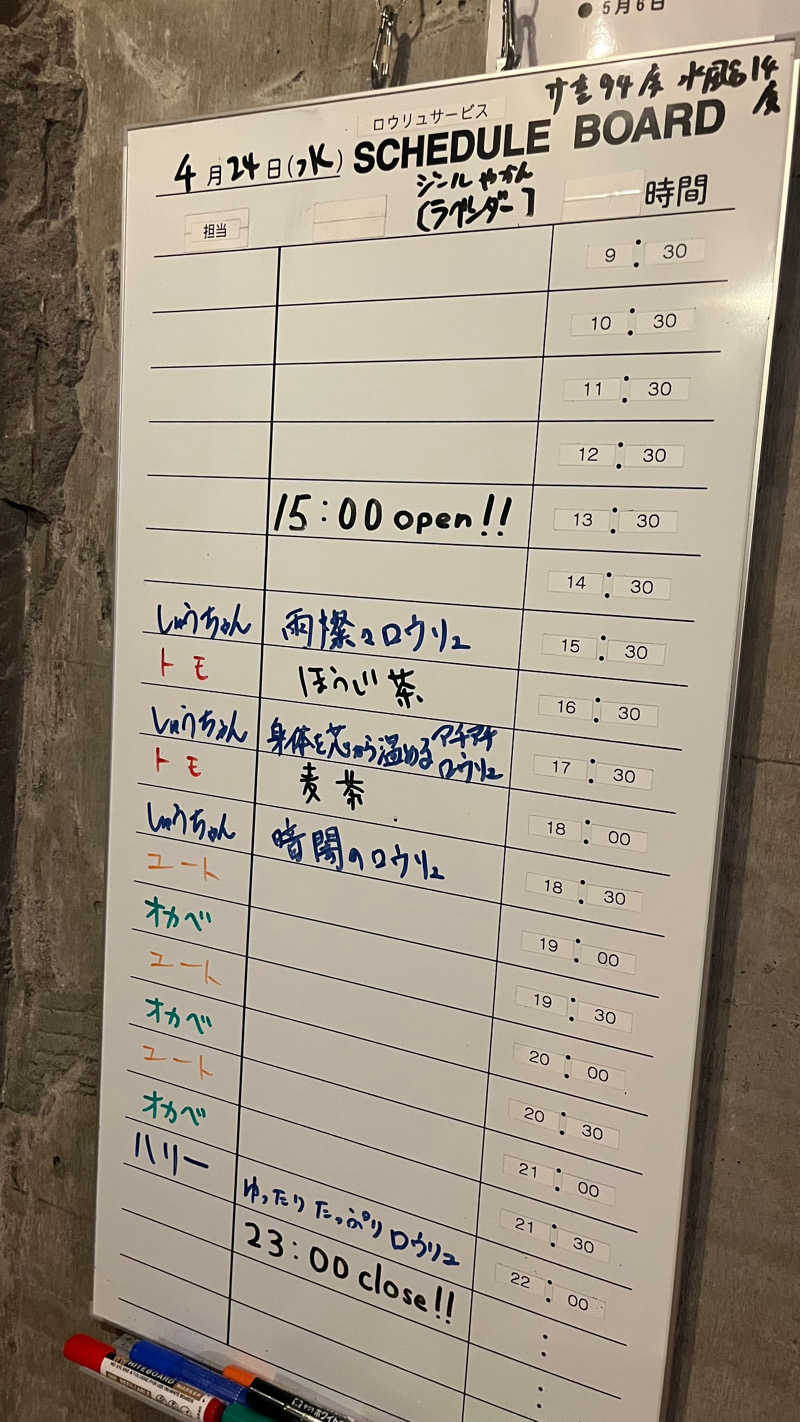 ●5月6日
サ室94度 水風呂14度
ロウリュサービス
4月24日(水) SCHEDULE BOARD
シールやかん
[ラベンダー]
担当 時間
9:30
10:30
11:30
12:30
15:00 open!! 13:30
14:30
しゅうちゃん ロウリュ 15:30
トモ ほうじ茶 16:30
しゅうちゃん 身体を芯から温めるアチアチロウリュ 17:30
トモ 麦茶 18:00
しゅうちゃん 暗闇のロウリュ 18:30
ユート 19:00
オカベ 19:30
ユート 20:00
オカベ 20:30
ユート 21:00
オカベ 21:30
ハリー ゆったりたっぷりロウリュ 22:00
23:00 close!! :
:
WHITEBOARD MARKER
ホワイト